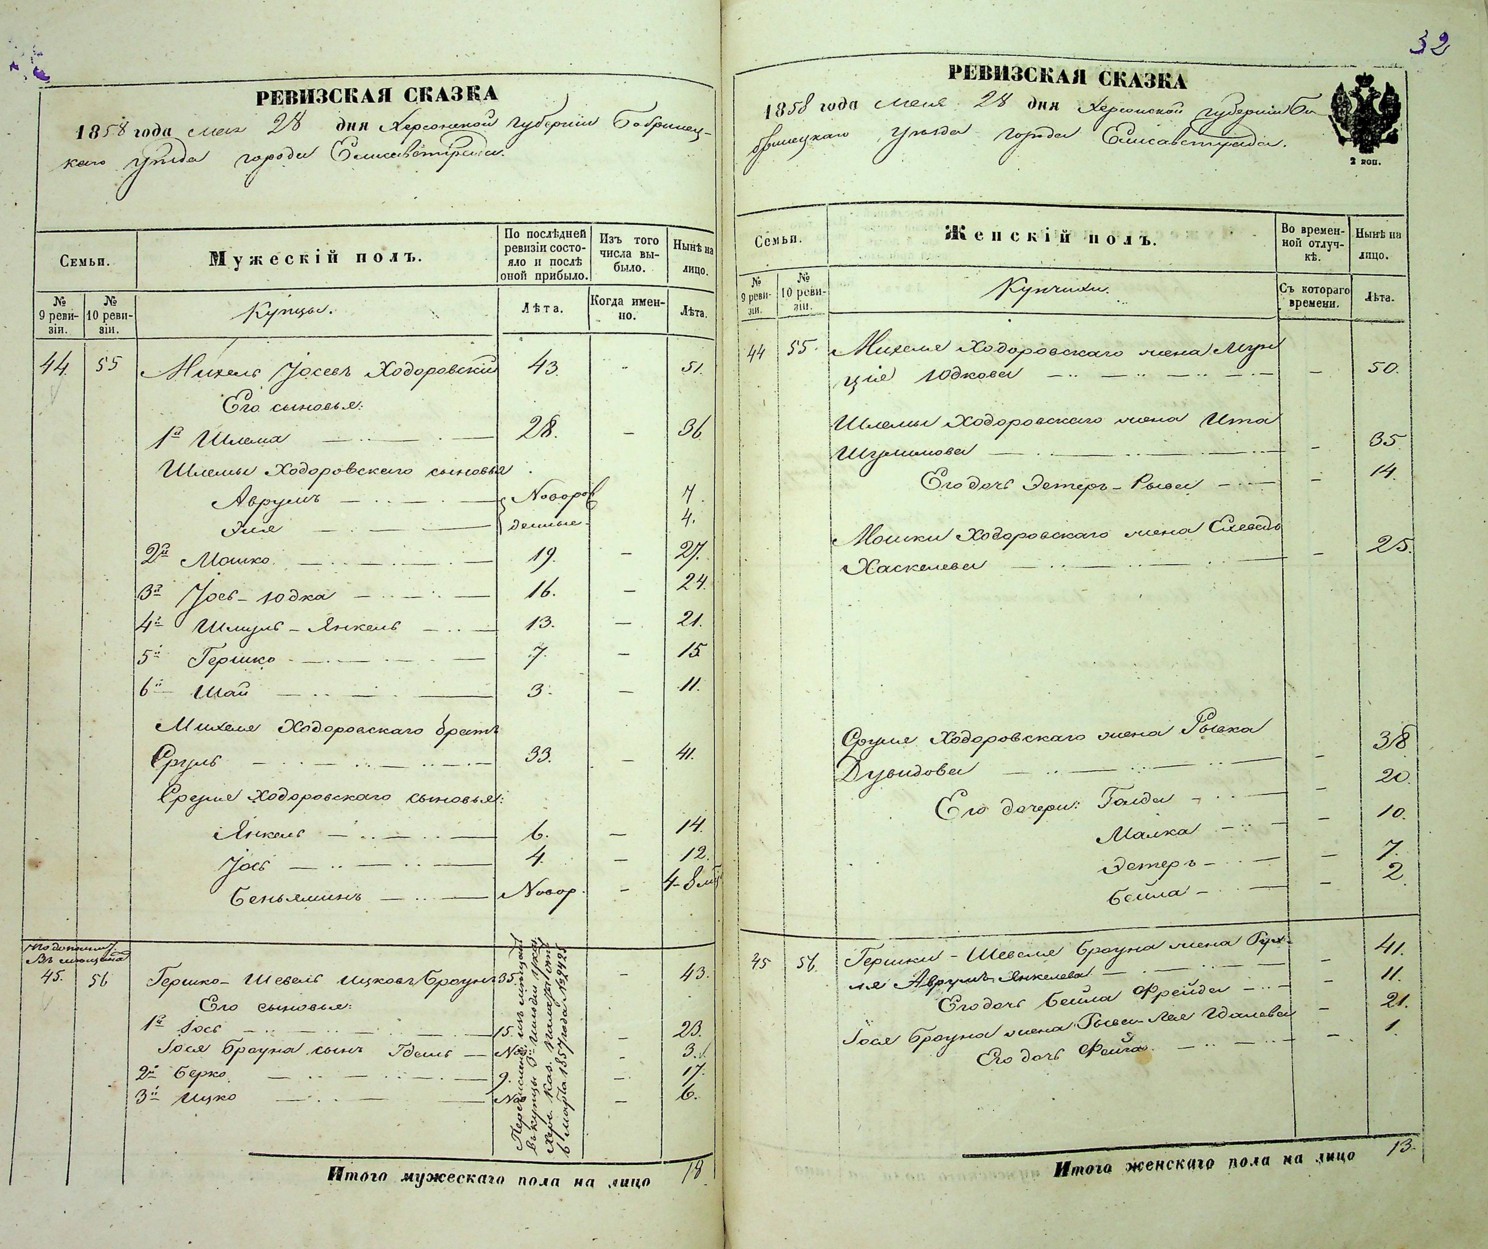 РЕВИЗСКАЯ СКАЗКА
1858 года мая 28 дня Херсонской губернии Бобринец-
каго уѣзда города Елисаветграда.
Семьи.
Мужескій полъ.
По послѣдней ревизіи состояло и послѣ оной прибыло.
Изъ того числа выбыло.
Нынѣ на лицо.
№ 9 ревизіи.
№ 10 ревизіи.
Купцы.
Лѣта.
Когда именно.
Лѣта.
44. 55 Михель Іосевъ Ходоровскій 43. - 51.
Его сыновья:
1й Шлема 28. - 36
Шлемы Ходоровскаго сыновья
Аврумъ Новорож 7.
Эля денные. 4.
2й Мошко 19. - 27.
3й Іось-Юдка 16. - 24.
4й Шмуль-Янкель 13. - 21.
5й Гершко 7. - 15
6й Шай 3. - 11.
Михеля Ходоровскаго братъ
Сруль 33. - 41.
Сруля Ходоровскаго сыновья:
Янкель 6. - 14.
Іось 4. - 12.
Беньяминъ Новор. - 4-8 мѣ
45. 56 Гершко-Шевель Ицковъ Броунъ 35. - 43.
Его сыновья:
1й Іось 15. - 23.
Іося Броуна сынъ Гдаль Но - 3.
2й Берко 9. - 17.
3й Ицко Но - 6.
Перечислены изъ мѣщанъ
въ купцы 3й гильдіи указ
Хер. Каз. Палаты отъ
в марта 1857 года № 2425
Итого мужескаго пола на лицо 18.
32
РЕВИЗСКАЯ СКАЗКА
1858 года мая 28 дня Херсонской губерніи Бо
бринецкаго уѣзда города Елисаветграда.
2 коп.
Семьи.
Женскій полъ.
Во временной отлучкѣ.
Нынѣ на лицо.
№ 9 ревизіи.
№ 10 ревизіи.
Купчихи.
Съ котораго времени.
Лѣта.
44 55. Михеля Ходоровскаго жена
Юдкова - 50.
Шлемы Ходоровскаго жена Ита
Шулимова - 35
Его дочь Эстеръ-Рыва - 14.
Мошки Ходоровскаго жена
Хаскелева - 25.
Сруля Ходоровскаго жена Рывка
Дувидова - 38
Его дочери: Голда - 20.
Малка - 10.
Эстеръ - 7.
Бейла - 2.
45 56. Гершки-Шевеля Броуна жена Рух-
ля Аврумъ-Янкелева - 41.
Его дочь Бейла Фрейда - 11.
Іося Броуна жена Рыва-Лея Гдалева - 21.
Его дочь Фейга - 1.
Итого женскаго пола на лицо 13.